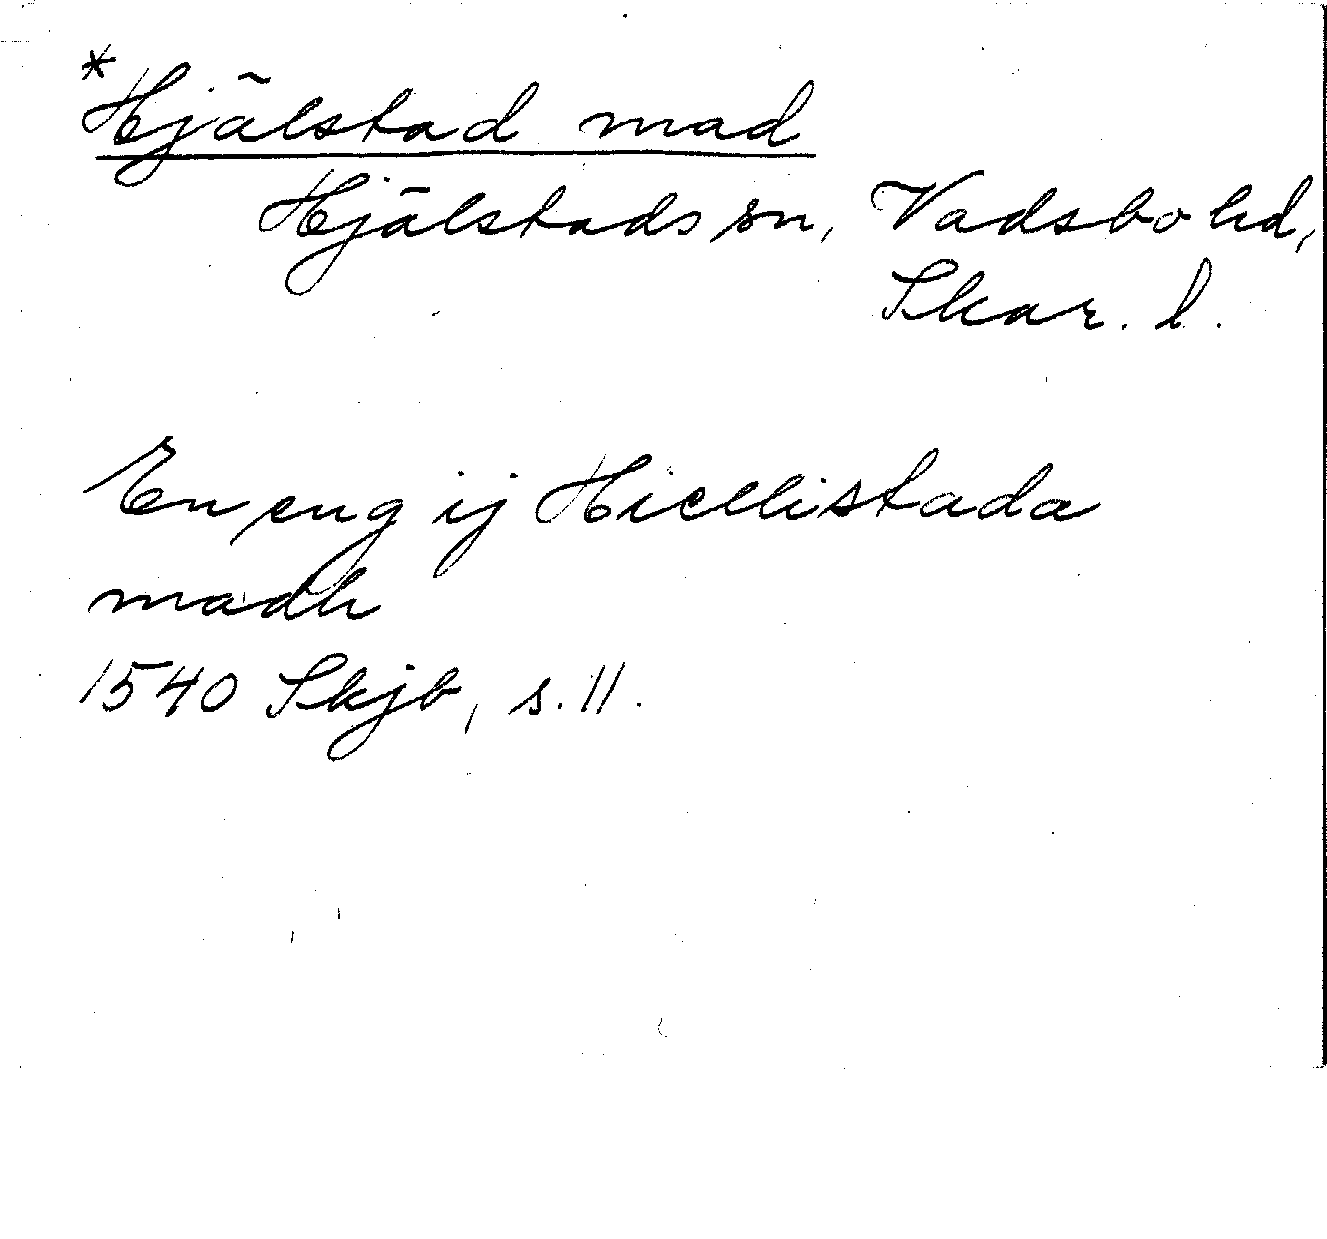 *
Hjälstad mad
Hjälstads sn, Vadsbo hd,
Skar. l.
En eng ij Hiellistada
madh
1540 Skjb, s. 11.